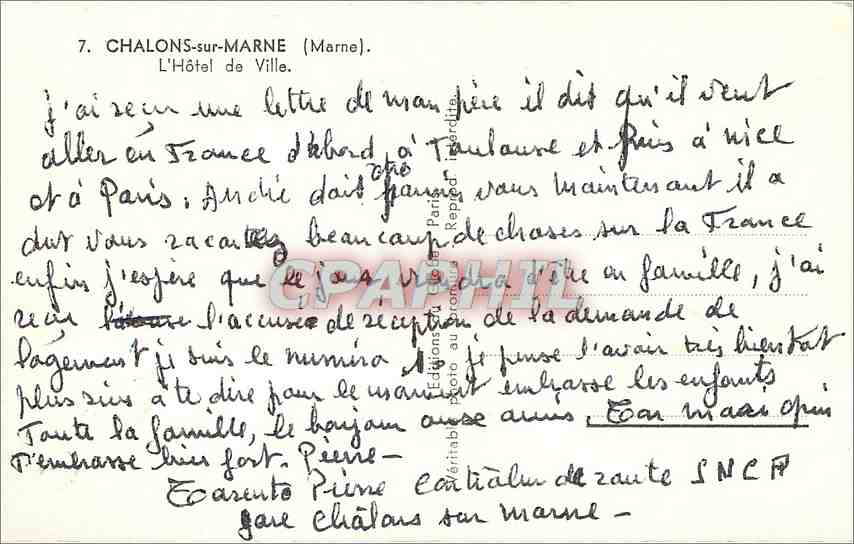 7. CHALONS-sur-MARNE (Marne).
L'Hôtel de Ville.
j'ai reçu une lettre de mon père il dit qu'il veut
aller en France d'abord à Toulouse et puis à nice
et à Paris. André doit etre parmi vous maintenant il a
dut vous racontez beaucoup de choses sur la France
enfin j'espère que le jour viendra d'être en famille, j'ai
reçu l'accusé de réception de la demande de
logement je suis le numéro je pense l'avoir très bientot
plus rien a te dire pour le moment embrasse les enfants
Toute la famille, le bonjour amis. Ton mari qui
T'embrasse bien fort. Pierre -
Pierre Contrôleur de route SNCF
gare Châlons sur marne -
Editions du Paris
Véritable photo au bromure Reprod. interdite
CPAPHIL